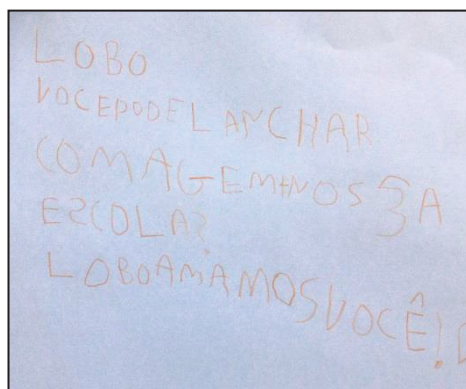 LOBO
VOCEPODELANCHAR
COMAGEMTNOS3A
ESCOLA?
LOBOAMAMOSVOCÊ!